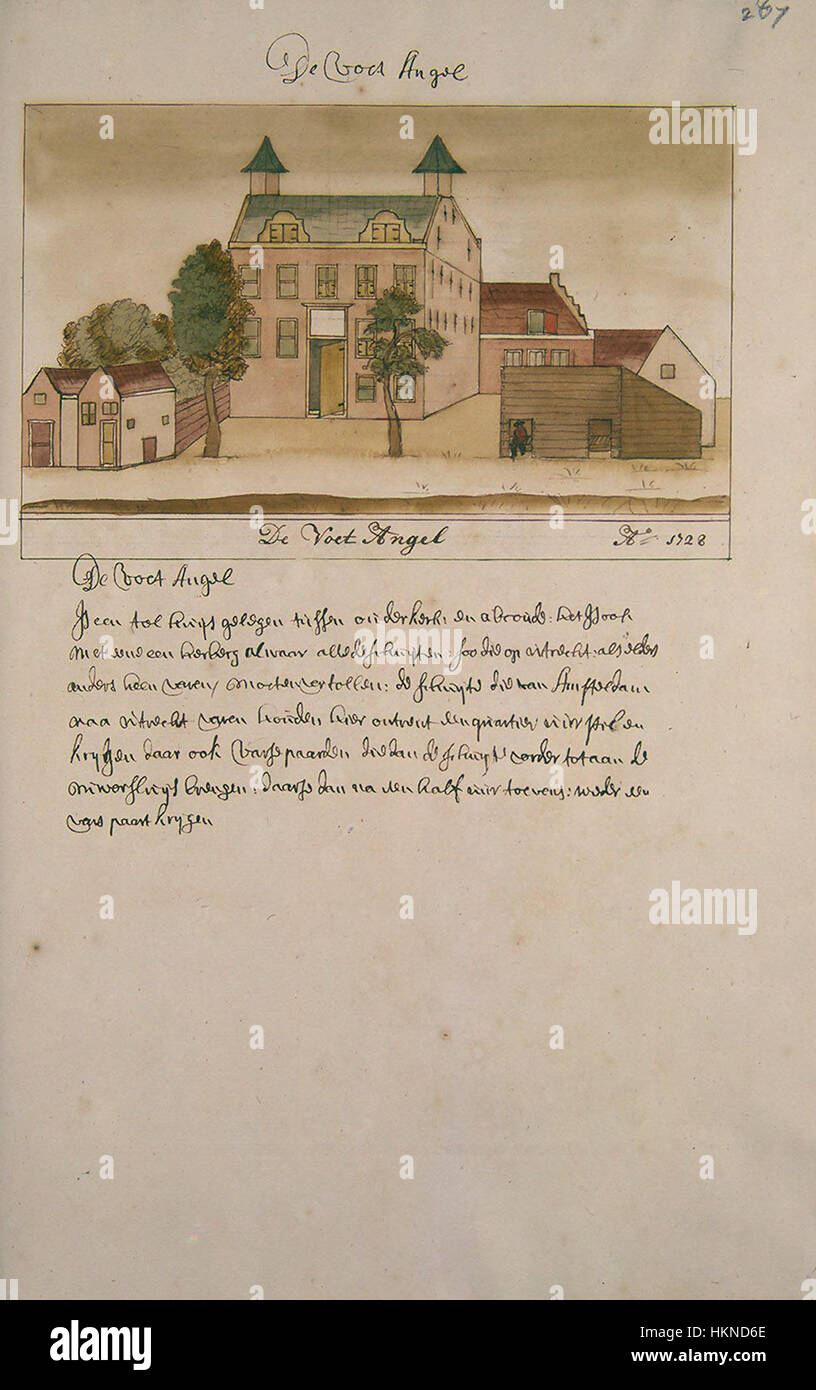 267
De Voet Angel
De Voet Angel Aº 1728
De Voet Angel
Is een tol huijs gelegen tussen ouderkerk: en abcoude: het Is ook
met eene een herberg alwaar alle de schuijten: soo die op uitrecht: als elders
anders heen varen, moeten vertollen: de schuijte die van Amsterdam
naa uitrecht varen houden hier ontrent een quartier uur stil en
krijgen daar ook varse paarden die dan de schuijte vorder tot aan de
nuwersluijs brengen: daarse dan na een half uur toevens: weder een
vars paart krijgen
alamy
alamy
Image ID: HKND6E
www.alamy.com